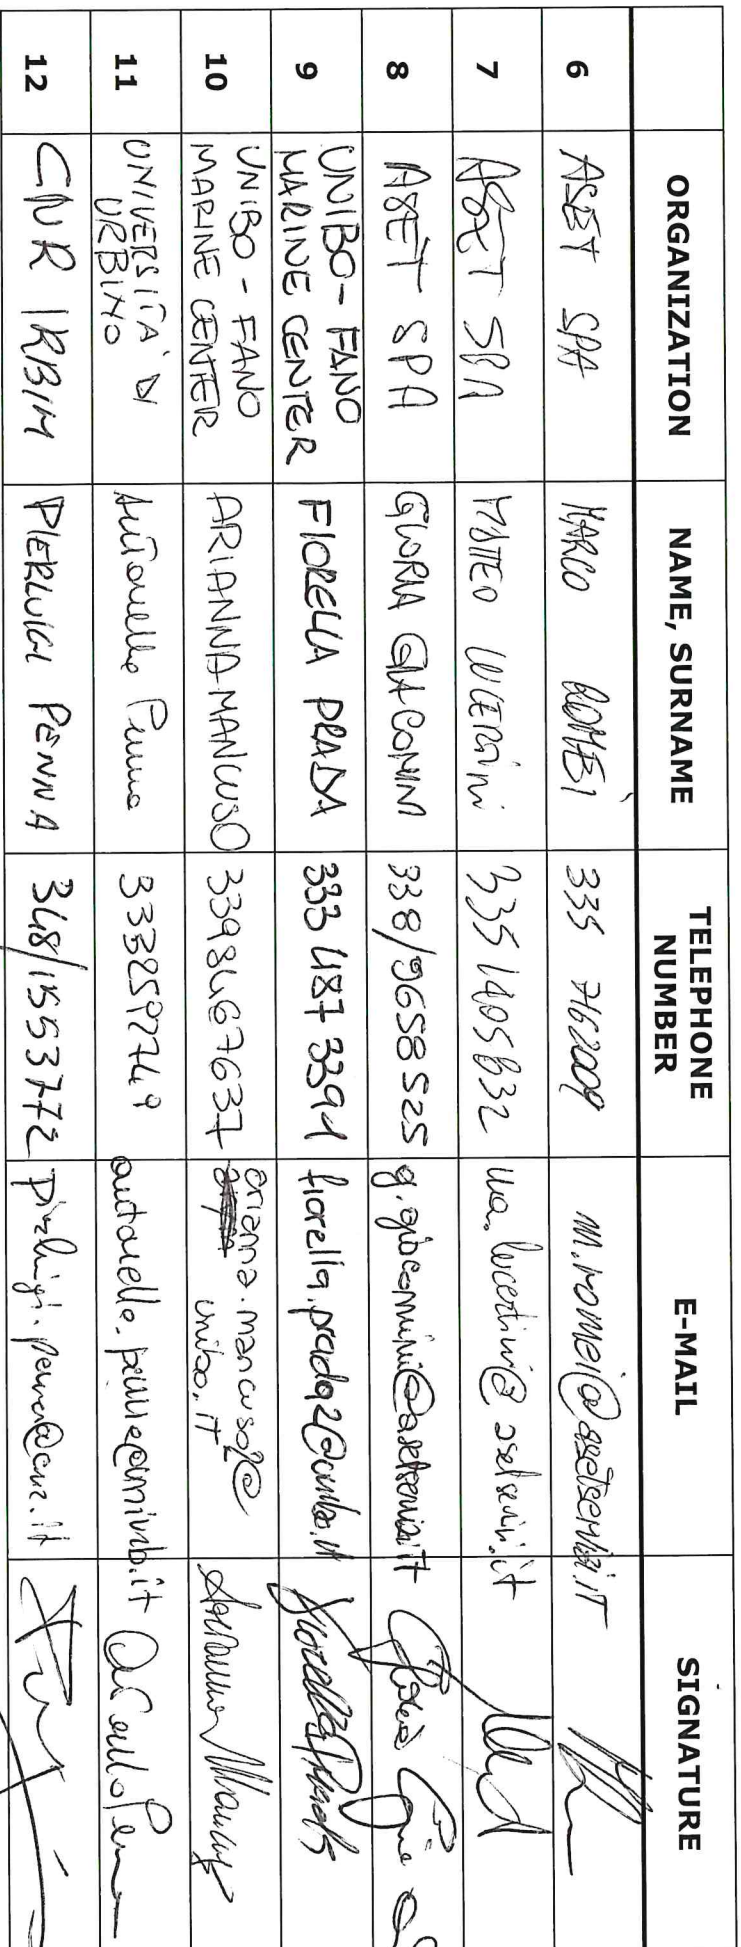 ORGANIZATION NAME, SURNAME TELEPHONE NUMBER E-MAIL SIGNATURE
6 ASET SPA MARCO ROMEI 335 7162009 m.romei@asetservizi.it
7 ASET SPA MATTEO LUCERTINI 335 1405632 ma.lucertini@asetservizi.it
8 ASET SPA GLORIA GIACOMINI 338/9658525 g.giacomini@asetservizi.it
9 UNIBO - FANO MARINE CENTER FIORELLA PRADA 333 487 3394 fiorella.prada2@unibo.it
10 UNIBO - FANO MARINE CENTER ARIANNA MANCUSO 3398467637 arianna.mancuso2@unibo.it
11 UNIVERSITA' DI URBINO Antonella Penna antonella.penna@uniurb.it
12 CNR IRBIM PIERLUIGI PENNA 348/1553772 pierluigi.penna@cnr.it